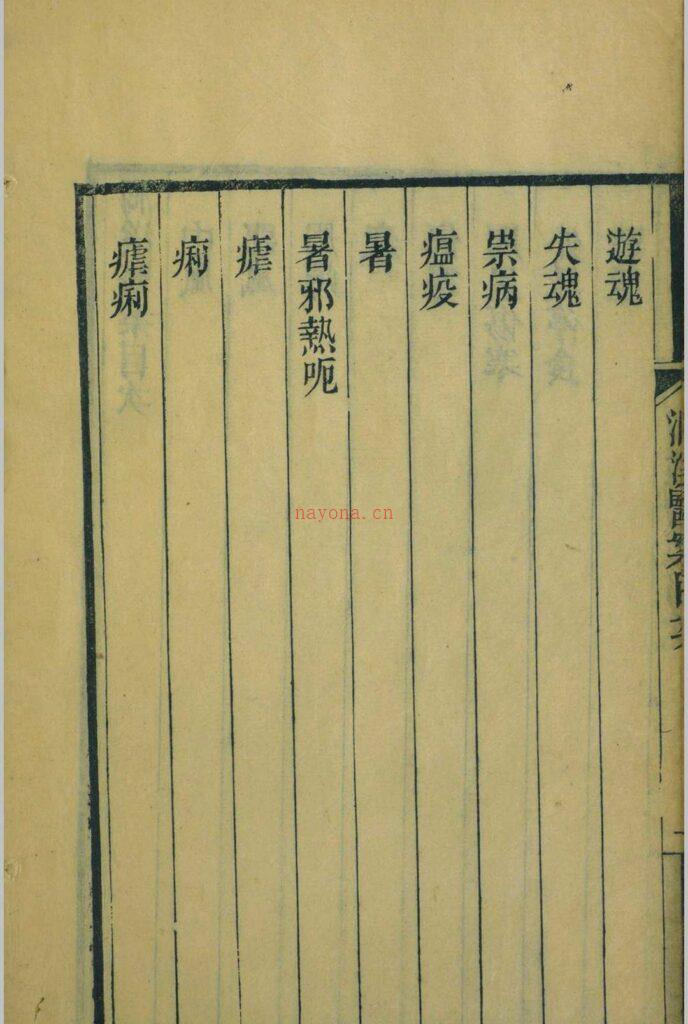 遊魂
失魂
祟病
瘟疫
暑
暑邪熱呃
瘧
痢
瘧痢
洄溪醫案目次
nayona.cn